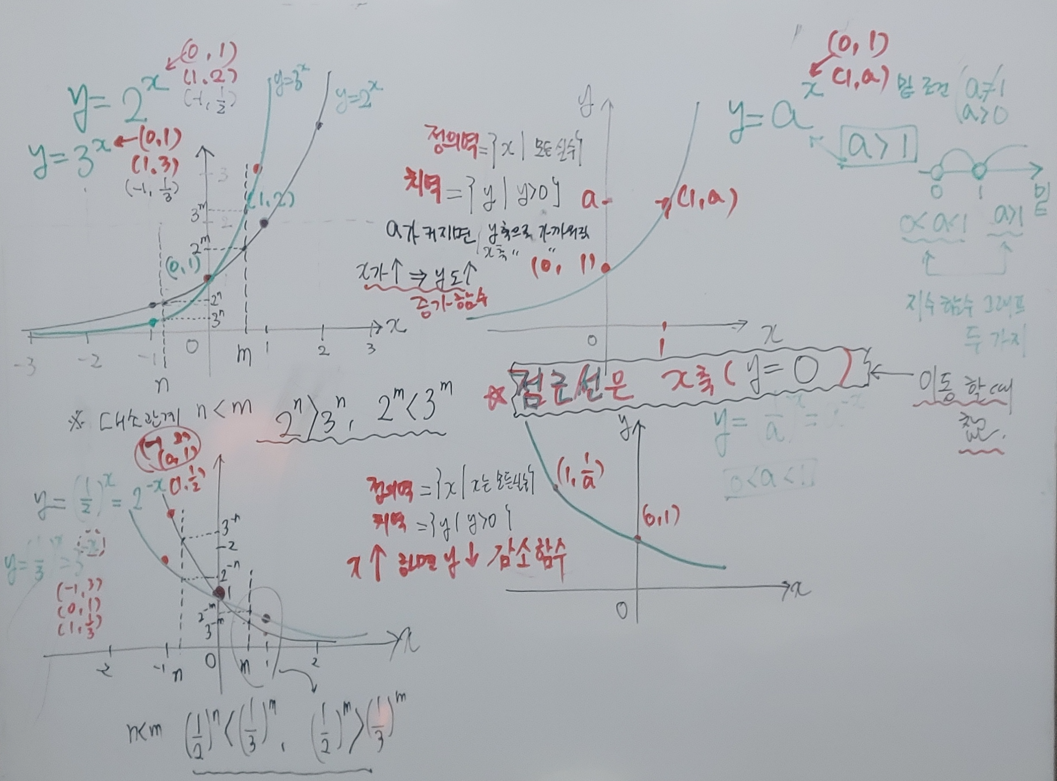 y = 2^x
(0, 1)
(1, 2)
(-1, 1/2)
y = 3^x
(0, 1)
(1, 3)
(-1, 1/3)
y=3^x
y=2^x
3
3^m
2^m
(1, 2)
(0, 1)
2^n
3^n
-3 -2 -1 0 m 1 2 3 x
n
※ 대소관계 n<m 2^n>3^n, 2^m<3^m
정의역={x | 모든 실수}
치역={y | y>0}
a가 커지면 y축으로 가까워짐
x축 " "
x가↑ ⇒ y도↑
증가함수
y
a
(1, a)
(0, 1)
0 1 x
y = a^x
(0, 1)
(1, a)
밑 조건 (a≠1
a>0
a>1
0 1 밑
0<a<1 a>1
지수함수 그래프
두 가지
☆ 점근선은 x축(y=0)
이동 할 때
참고.
y=(1/2)^x=2^-x
(0, 1)
(1, 1/2)
y=(1/3)^x=3^-x
(-1, 3)
(0, 1)
(1, 1/3)
3^-n
2
2^-n
1
2^-m
3^-m
-2 -1 n 0 m 1 2 x
n<m (1/2)^n<(1/3)^n, (1/2)^m>(1/3)^m
정의역={x | x는 모든 실수}
치역={y | y>0}
x↑ 하면 y↓ 감소함수
y
(1, 1/a)
(0, 1)
0 x
0<a<1